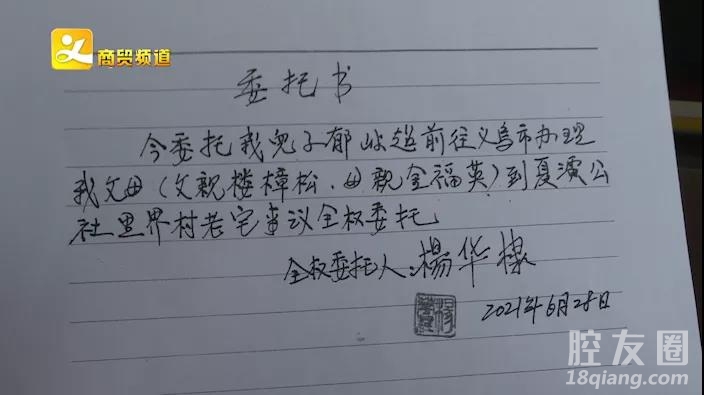 商贸频道
委托书
今委托我儿子郁 超前往义乌市办理
我父母(父亲楼樟松、母亲金福英)到夏演公
社里界村老宅事议全权委托
全权委托人:楊华棣
2021年6月28日
腔友圈
18qiang.com